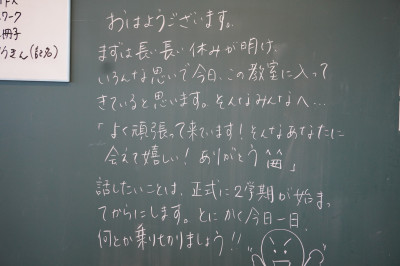 ワーク
冊子
ぞうきん(記名)
おはようございます。
まずは長い長い休みが明け、
いろんな思いで今日、この教室に入って
きていると思います。そんなみんなへ…
「よく頑張って来ています!そんなあなたに
会えて嬉しい!ありがとう 」
話したいことは、正式に2学期が始まっ
てからにします。とにかく今日一日、
何とか乗りきりましょう!!